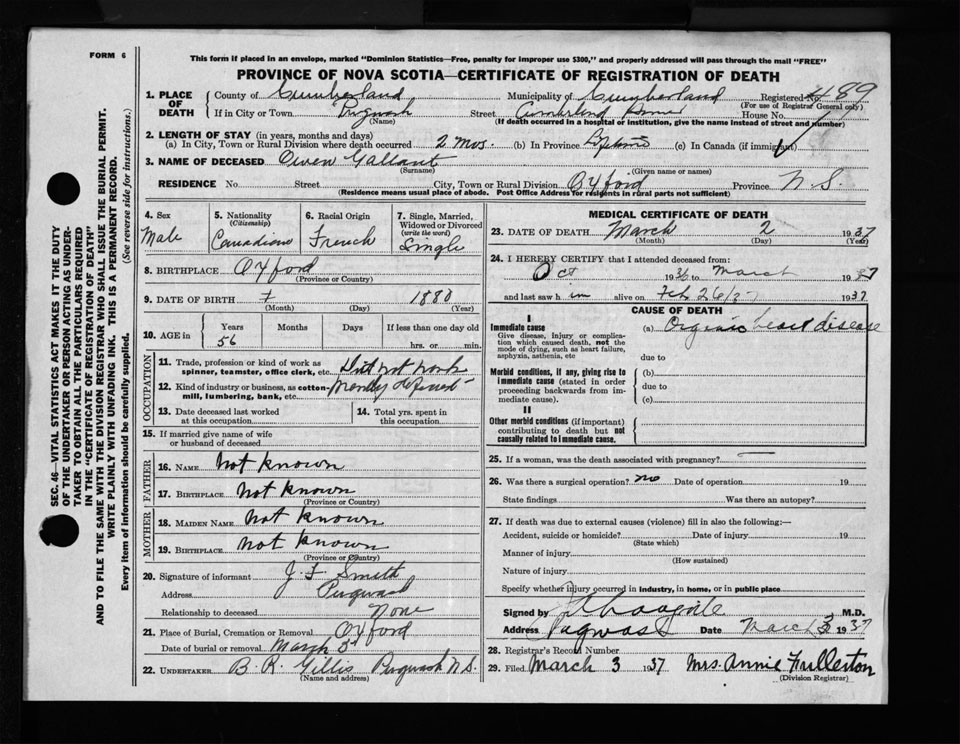 FORM 6
This form if placed in an envelope, marked "Dominion Statistics—Free, penalty for improper use $300," and properly addressed will pass through the mail "FREE"
PROVINCE OF NOVA SCOTIA—CERTIFICATE OF REGISTRATION OF DEATH
SEC. 46—VITAL STATISTICS ACT MAKES IT THE DUTY
OF THE UNDERTAKER OR PERSON ACTING AS UNDER-
TAKER TO OBTAIN ALL THE PARTICULARS REQUIRED
IN THE "CERTIFICATE OF REGISTRATION OF DEATH"
AND TO FILE THE SAME WITH THE DIVISION REGISTRAR WHO SHALL ISSUE THE BURIAL PERMIT.
WRITE PLAINLY WITH UNFADING INK. THIS IS A PERMANENT RECORD.
Every item of information should be carefully supplied. (See reverse side for instructions.)
1. PLACE OF DEATH
County of Cumberland Municipality of Cumberland Registered No. 489
(For use of Registrar General only)
If in City or Town Pugwash Street House No.
(Name) (If death occurred in a hospital or institution, give the name instead of street and number)
2. LENGTH OF STAY (in years, months and days)
(a) In City, Town or Rural Division where death occurred 2 mos. (b) In Province (c) In Canada (if immigrant)
3. NAME OF DECEASED Owen Gallant
(Surname) (Given name or names)
RESIDENCE No. Street City, Town or Rural Division Oxford Province N.S.
(Residence means usual place of abode. Post Office Address for residents in rural parts not sufficient)
4. Sex
Male
5. Nationality
(Citizenship)
Canadian
6. Racial Origin
French
7. Single, Married,
Widowed or Divorced
(write the word)
Single
8. BIRTHPLACE Oxford
(Province or County)
9. DATE OF BIRTH 1880
(Month) (Day) (Year)
10. AGE in
Years Months Days If less than one day old
56 hrs. or min.
OCCUPATION
11. Trade, profession or kind of work as
spinner, teamster, office clerk, etc. Did not work
12. Kind of industry or business, as cotton-
mill, lumbering, bank, etc.
13. Date deceased last worked
at this occupation
14. Total yrs. spent in
this occupation
15. If married give name of wife
or husband of deceased
FATHER
16. NAME Not known
17. BIRTHPLACE Not known
(Province or Country)
MOTHER
18. MAIDEN NAME Not known
19. BIRTHPLACE Not known
(Province or Country)
20. Signature of informant J. F. Smith
Address Pugwash
Relationship to deceased None
21. Place of Burial, Cremation or Removal Oxford
Date of burial or removal March 3
22. UNDERTAKER B. R. Gillis Pugwash N.S.
(Name and address)
MEDICAL CERTIFICATE OF DEATH
23. DATE OF DEATH March 2 1937
(Month) (Day) (Year)
24. I HEREBY CERTIFY that I attended deceased from:
Oct 1936 to March 1937
and last saw him alive on Feb 26/37 1937
CAUSE OF DEATH
I
Immediate cause
Give disease, injury or complica-
tion which caused death, not the
mode of dying, such as heart failure,
asphyxia, asthenia, etc
(a) Organic heart disease
due to
Morbid conditions, if any, giving rise to
immediate cause (stated in order
proceeding backwards from im-
mediate cause).
(b)
due to
(c)
II
Other morbid conditions (if important)
contributing to death but not
causally related to immediate cause.
25. If a woman, was the death associated with pregnancy? —
26. Was there a surgical operation? no Date of operation 19
State findings Was there an autopsy?
27. If death was due to external causes (violence) fill in also the following:—
Accident, suicide or homicide? Date of injury 19
(State which)
Manner of injury
(How sustained)
Nature of injury
Specify whether injury occurred in industry, in home, or in public place
Signed by M.D.
Address Pugwash Date March 3 1937
28. Registrar's Record Number
29. Filed March 3 1937 Mrs. Annie Fullerton
(Division Registrar)